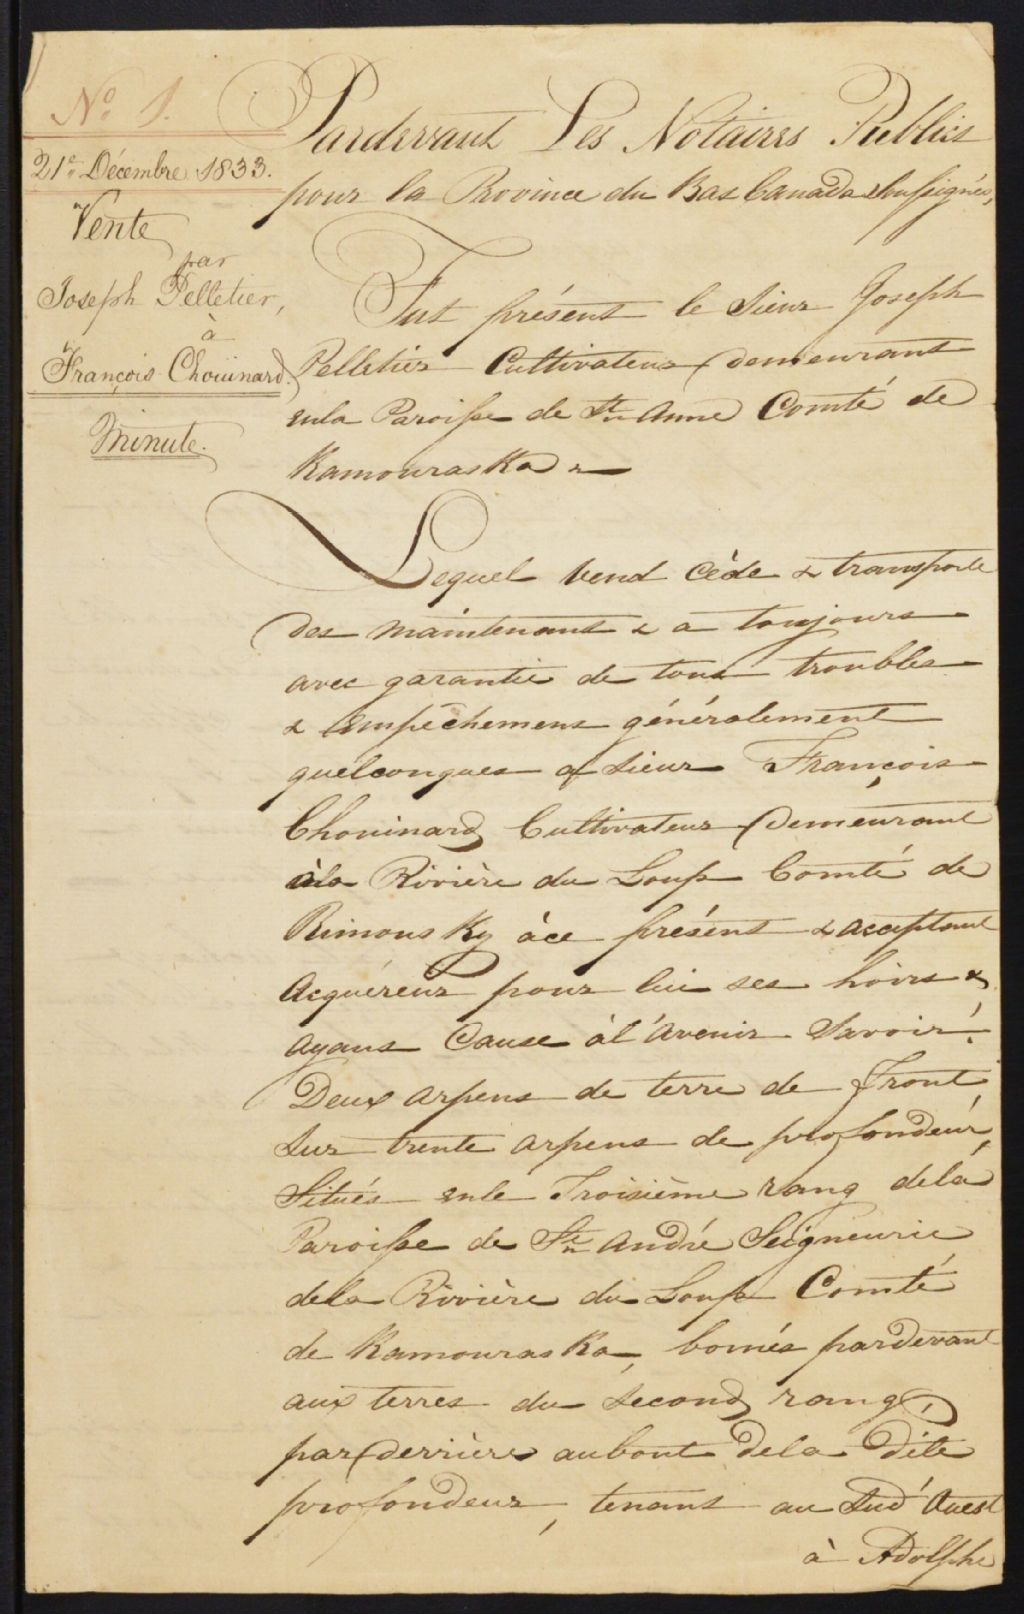 No 1.
21e Décembre 1833.
Vente
par
Joseph Pelletier,
à
François Chouinard.
Minute.
Pardevant Les Notaires Publics
pour la Province du Bas Canada Soussignés,
Fut présent le Sieur Joseph
Pelletier Cultivateur demeurant
enla Paroisse de Ste Anne Comté de
Kamouraska
Lequel vend cède & transporte
des maintenant & a toujours
avec garantie de tous troubles
& empêchemens généralement
quelconques a Sieur François
Chouinard Cultivateur demeurant
àla Rivière du Loup Comté de
Rimousky àce présent & acceptant
Acquéreur pour lui ses hoirs &
ayans Cause àl'avenir Savoir:
Deux arpens de terre de front
Sur trente arpens de profondeur,
Situés enle Troisième rang dela
Paroisse de St André Seigneurie
dela Rivière du Loup Comté
de Kamouraska, bornés pardevant
aux terres du Second rang,
par derrière aubout dela dite
profondeur, tenant au Sud Ouest
à Adolphe